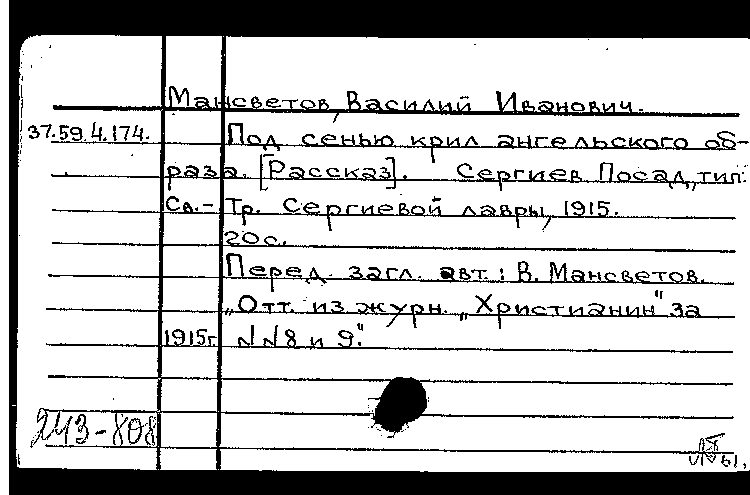 Мансветов, Василий Иванович.
37.59.4.174. Под сенью крил ангельского об-
раза. [Рассказ]. Сергиев Посад, тип.
Св.-Тр. Сергиевой лавры, 1915.
20с.
Перед загл. авт.: В. Мансветов.
„Отт. из журн. „Христианин" за
1915г. NN8 и 9."
243-808
61.